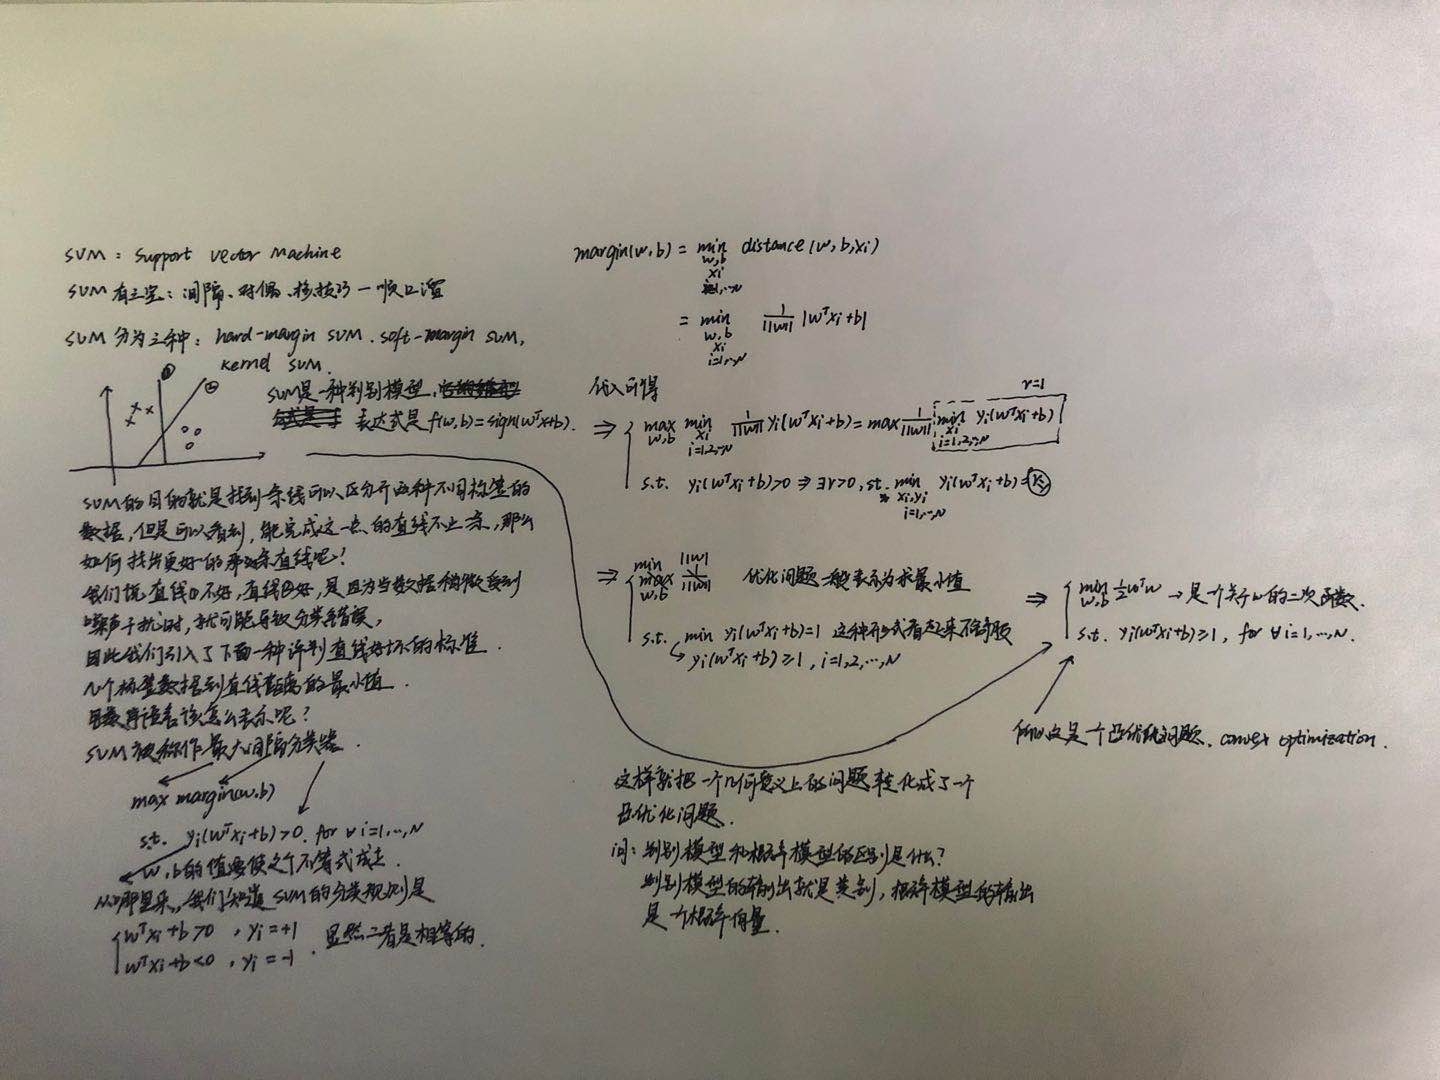 SVM：Support Vector Machine
SVM有三宝：间隔、对偶、核技巧—顺口溜
SVM分为三种：hard-margin SVM、soft-margin SVM,
kernel SVM.
① ②
SVM是一种判别模型,
表达式是f(w,b)=sign(wᵀx+b).
SVM的目的就是找到一条线可以区分开两种不同标签的
数据，但是可以看到，能完成这一点的直线不止一条，那么
如何找出更好的那条直线呢？
我们说直线①不好，直线②好，是因为当数据稍微受到
噪声干扰时，就可能导致分类错误，
因此我们引入了下面一种评判直线好坏的标准.
几个标签数据到直线距离的最小值.
用数学语言该怎么表示呢？
SVM被称作最大间隔分类器.
max margin(w,b)
s.t. yᵢ(wᵀxᵢ+b)>0, for ∀ i=1,…,N
w,b的值要使这个不等式成立.
从哪里来，我们知道SVM的分类规则是
{ wᵀxᵢ+b>0 , yᵢ=+1
wᵀxᵢ+b<0 , yᵢ=-1 . 显然二者是相等的.
margin(w,b) = min distance(w,b,xᵢ)
w,b
xᵢ
i=1,…,N
= min 1/||w|| |wᵀxᵢ+b|
w,b
xᵢ
i=1,…,N
代入可得
r=1
⇒ { max min 1/||w|| yᵢ(wᵀxᵢ+b) = max 1/||w|| min yᵢ(wᵀxᵢ+b)
w,b xᵢ xᵢ
i=1,2,…,N i=1,2,…,N
s.t. yᵢ(wᵀxᵢ+b)>0 ⇒ ∃r>0, st. min yᵢ(wᵀxᵢ+b)=r
xᵢ,yᵢ
i=1,…,N
⇒ { min ||w||
max 1/||w|| 优化问题一般表示为求最小值
w,b
s.t. min yᵢ(wᵀxᵢ+b)=1 这种形式看起来不舒服
↳ yᵢ(wᵀxᵢ+b)≥1, i=1,2,…,N
⇒ { min ½wᵀw → 是一个关于w的二次函数.
w,b
s.t. yᵢ(wᵀxᵢ+b)≥1, for ∀ i=1,…,N.
所以这是个凸优化问题、convex optimization.
这样就把一个几何意义上的问题转化成了一个
凸优化问题.
问：判别模型和概率模型的区别是什么？
判别模型的输出就是类别，概率模型的输出
是一个概率向量.